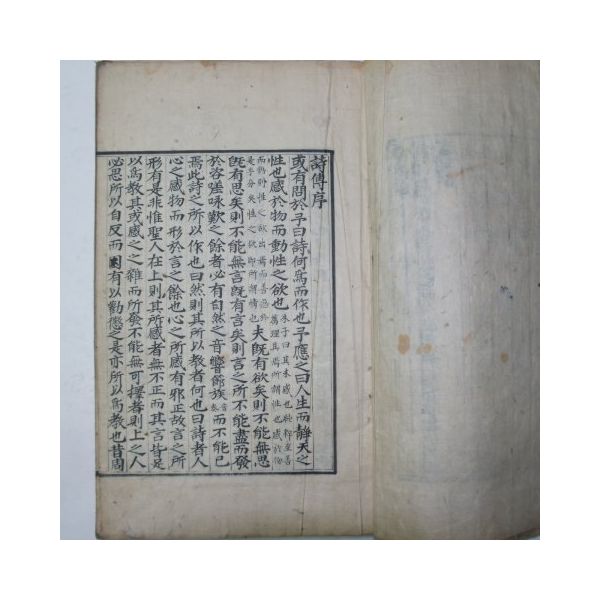 詩傳序
或有問於予曰詩何爲而作也予應之曰人生而靜天之
性也感於物而動性之欲也朱子曰其未感也純粹至善萬理具焉所謂性也感於物
而動則性之欲出焉而善惡於是乎分矣性之欲即所謂情也夫旣有欲矣則不能無思
旣有思矣則不能無言旣有言矣則言之所不能盡而發
於咨嗟咏歎之餘者必有自然之音響節族音奏而不能已
焉此詩之所以作也曰然則其所以敎者何也曰詩者人
心之感物而形於言之餘也心之所感有邪正故言之所
形有是非惟聖人在上則其所感者無不正而其言皆足
以爲敎其或感之之雜而所發不能無可擇者則上之人
必思所以自反而因有以勸懲之是亦所以爲敎也昔周